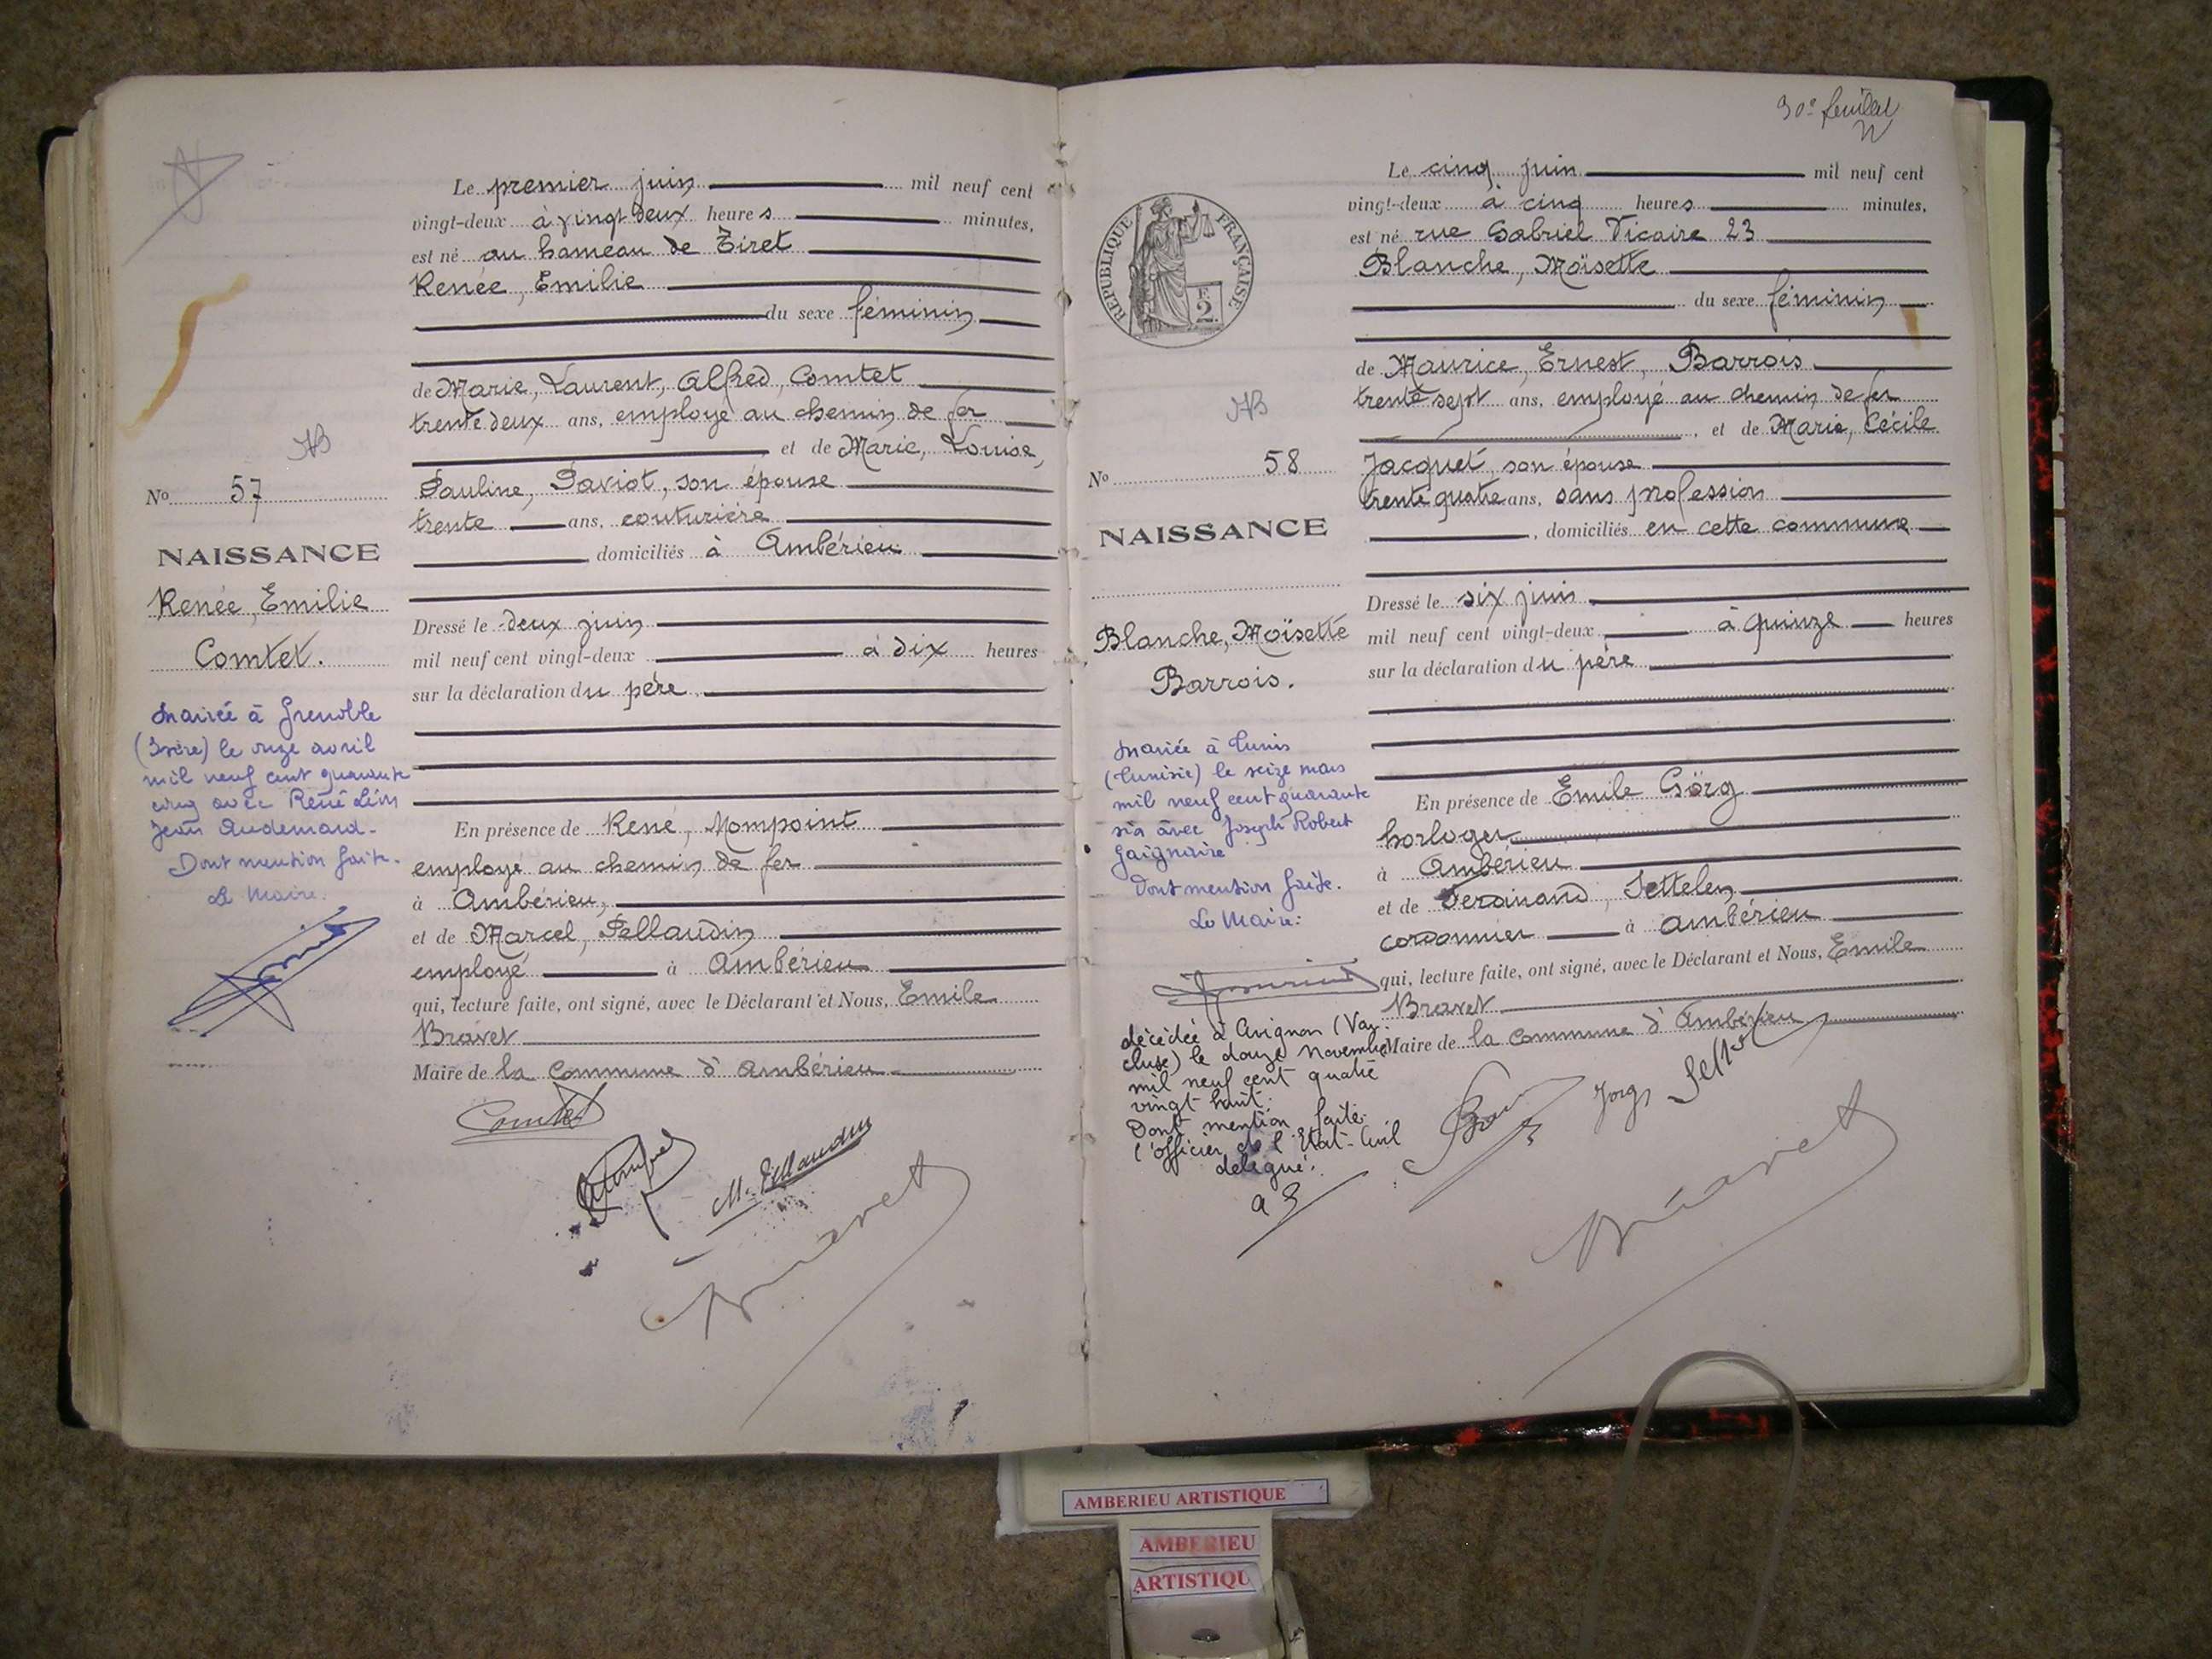 Le premier juin mil neuf cent
vingt-deux à vingt deux heures minutes,
est né au hameau de Tiret
Renée, Emilie
du sexe féminin
de Marie, Laurent, Alfred, Comtet
trente deux ans, employé au chemin de fer
et de Marie, Louise,
Pauline, Paviot, son épouse
trente ans, couturière
domiciliés à Ambérieu
Dressé le deux juin
mil neuf cent vingt-deux à dix heures
sur la déclaration du père
En présence de René, Mompoint
employé au chemin de fer
à Ambérieu,
et de Marcel, Pellaudin
employé à Ambérieu
qui, lecture faite, ont signé, avec le Déclarant et Nous, Emile
Bravet
Maire de la Commune d'Ambérieu
Comtet
M. Pellaudin
Bravet
No 57
NAISSANCE
Renée, Emilie
Comtet.
Mariée à Grenoble
(Isère) le onze avril
mil neuf cent quarante
cinq avec René Léon
Jean Audemard.
Dont mention faite.
Le Maire.
30e feuillet
REPUBLIQUE FRANÇAISE
F.
2
Le cinq juin mil neuf cent
vingt-deux à cinq heures minutes,
est né rue Gabriel Vicaire 23
Blanche, Moïsette
du sexe féminin
de Maurice, Ernest, Barrois
trente sept ans, employé au chemin de fer
, et de Marie, Cécile
Jacquet, son épouse
trente quatre ans, sans profession
, domiciliés en cette commune
Dressé le six juin
mil neuf cent vingt-deux à quinze heures
sur la déclaration du père
En présence de Emile Görg
horloger
à Ambérieu
et de Ferdinand, Settelen
cordonnier à Ambérieu
qui, lecture faite, ont signé, avec le Déclarant et Nous, Emile
Bravet
Maire de la Commune d'Ambérieu
Bravet
No 58
NAISSANCE
Blanche, Moïsette
Barrois.
Mariée à Tunis
(Tunisie) le seize mars
mil neuf cent quarante
six avec Joseph Robert
Gaignaire
Dont mention faite.
Le Maire:
décédée à Avignon (Vau-
cluse) le douze Novembre
mil neuf cent quatre
vingt huit.
Dont mention faite.
l'officier de l'Etat-Civil
délégué.
AMBERIEU ARTISTIQUE
AMBERIEU
ARTISTIQU